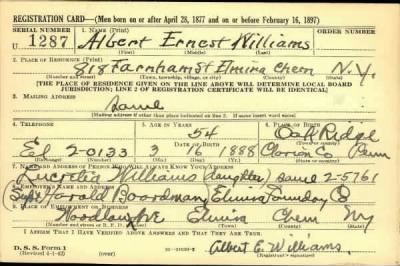 REGISTRATION CARD—(Men born on or after April 28, 1877 and on or before February 16, 1897)
SERIAL NUMBER 1. NAME (Print) ORDER NUMBER
U 1287 Albert Ernest Williams
(First) (Middle) (Last)
2. PLACE OF RESIDENCE (Print)
818 Farnham St Elmira Chem N.Y.
(Number and street) (Town, township, village, or city) (County) (State)
[THE PLACE OF RESIDENCE GIVEN ON THE LINE ABOVE WILL DETERMINE LOCAL BOARD
JURISDICTION; LINE 2 OF REGISTRATION CERTIFICATE WILL BE IDENTICAL]
3. MAILING ADDRESS
Same
(Mailing address if other than place indicated on line 2. If same insert word same)
4. TELEPHONE 5. AGE IN YEARS 6. PLACE OF BIRTH
54 Oak Ridge
DATE OF BIRTH
El 2-0133 3 16 1888 Clarion Co Penn
(Exchange) (Number) (Mo.) (Day) (Yr.) (State or country)
7. NAME AND ADDRESS OF PERSON WHO WILL ALWAYS KNOW YOUR ADDRESS
Lucretia Williams (daughter) Same 2-5761
8. EMPLOYER'S NAME AND ADDRESS
Gerald Boardman Elmira Foundry Co
9. PLACE OF EMPLOYMENT OR BUSINESS
Woodlawn Ave Elmira Chem NY
(Number and street or R. F. D. number) (Town) (County) (State)
I AFFIRM THAT I HAVE VERIFIED ABOVE ANSWERS AND THAT THEY ARE TRUE.
D. S. S. Form 1
(Revised 4-1-42) (over)
Albert E. Williams